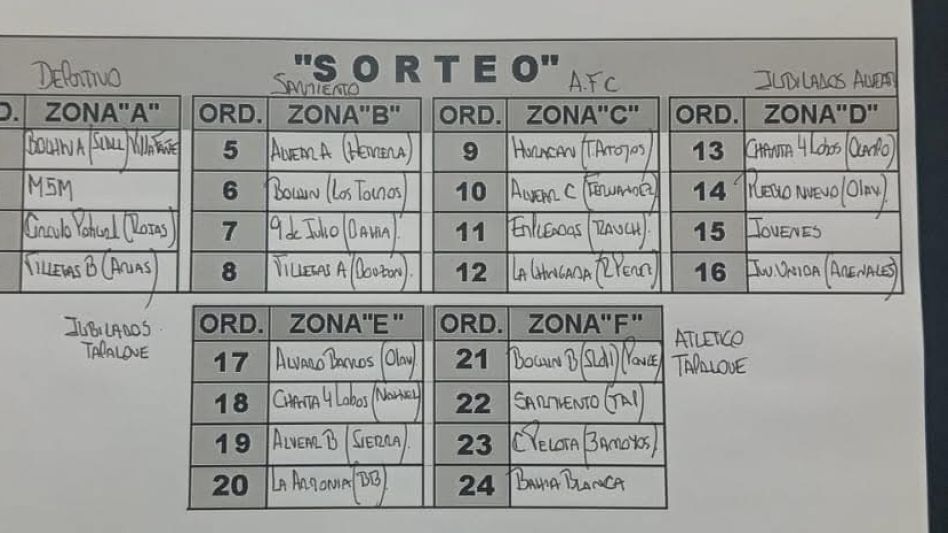 "SORTEO"
DEPORTIVO SARMIENTO A.F.C JUBILADOS ALVEAR
D. ZONA"A" ORD. ZONA"B" ORD. ZONA"C" ORD. ZONA"D"
5 ALVEAR A (HERRERA) 9 HURACAN (TARROYOS) 13 CHANTA 4 Lobos (OCAMPO)
M5M 6 BOLIVIN (LOS TOLDOS) 10 ALVEAR C (FERNANDEZ) 14 PUEBLO NUEVO (OLAV.)
Circulo Policial (ROJAS) 7 9 de Julio (BAHIA). 11 EMPLEADOS (RAUCH). 15 JOVENES
VILLEGAS B (ARIAS) 8 VILLEGAS A 12 16 JUV UNIDA (ARENALES)
ORD. ZONA"E" ORD. ZONA"F"
JUBILADOS TAPALQUE ATLETICO TAPALQUE
17 ALVARO BARROS (Olav.) 21 (PONCE)
18 CHANTA 4 Lobos 22 SARMIENTO (TAP)
19 ALVEAR B (SIERRA). 23 C PELOTA (3 ARROYOS).
20 LA ARMONIA (BB) 24 BAHIA BLANCA